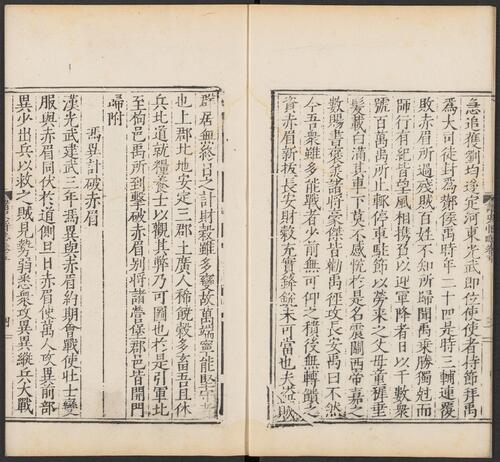 急追獲劉均遂定河東光武即位使使者持節拜禹
為大司徒封為酇侯禹時年二十四是時三輔連覆
敗赤眉所過殘賊百姓不知所歸聞禹乘勝獨尅而
師行有紀皆望風相携負以迎軍降者日以千數衆
號百萬禹所止輒停車駐節以勞來之父母童穉垂
髪戴白滿其車下莫不感恱於是名震關西帝嘉之
數賜書褒美諸將豪傑皆勸禹徑攻長安禹曰不然
今吾衆雖多能戰者少前無可仰之積後無轉饋之
資赤眉新拔長安財穀充實鋒銳未可當也夫盗賊
群居無終日之計財穀雖多變故萬端寧能堅守
也上郡北地安定三郡土廣人稀饒穀多畜吾且休
兵北道就糧養士以觀其弊乃可圖也於是引軍北
至栒邑禹所到擊破赤眉别將諸營堡郡邑皆開門
歸附
馮異計破赤眉
漢光武建武三年馮異與赤眉約期會戰使壮士變
服與赤眉同伏於道側旦日赤眉使萬人攻異前部
異少出兵以救之賊見勢弱悉衆攻異異縱兵大戰